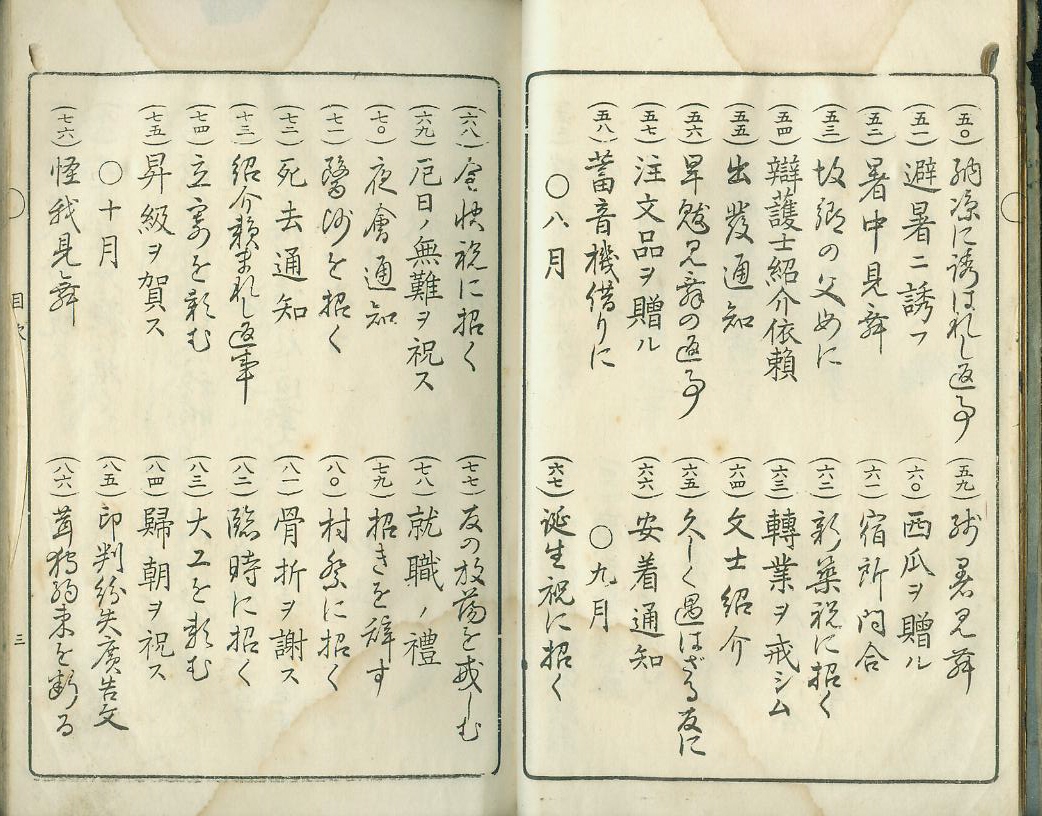 (五〇)納涼に誘はれし返事
(五一)避暑ニ誘フ
(五二)暑中見舞
(五三)故郷の父母に
(五四)辯護士紹介依頼
(五五)出發通知
(五六)旱魃見舞の返事
(五七)注文品ヲ贈ル
(五八)蓄音機借りに
〇八月
(五九)残暑見舞
(六〇)西瓜ヲ贈ル
(六一)宿所問合
(六二)新築祝に招く
(六三)轉業ヲ戒シム
(六四)文士紹介
(六五)久しく遇はざる友に
(六六)安着通知
〇九月
(六七)誕生祝に招く
(六八)全快祝に招く
(六九)厄日ノ無難ヲ祝ス
(七〇)夜會通知
(七一)醫師を招く
(七二)死去通知
(七三)紹介頼まれし返事
(七四)立寄を頼む
(七五)昇級ヲ賀ス
〇十月
(七六)怪我見舞
(七七)友の放蕩を戒しむ
(七八)就職ノ禮
(七九)招きを辞す
(八〇)村祭に招く
(八一)骨折ヲ謝ス
(八二)臨時に招く
(八三)大工を頼む
(八四)歸朝ヲ祝ス
(八五)印判紛失廣告文
(八六)茸狩約束を断る
目次
三